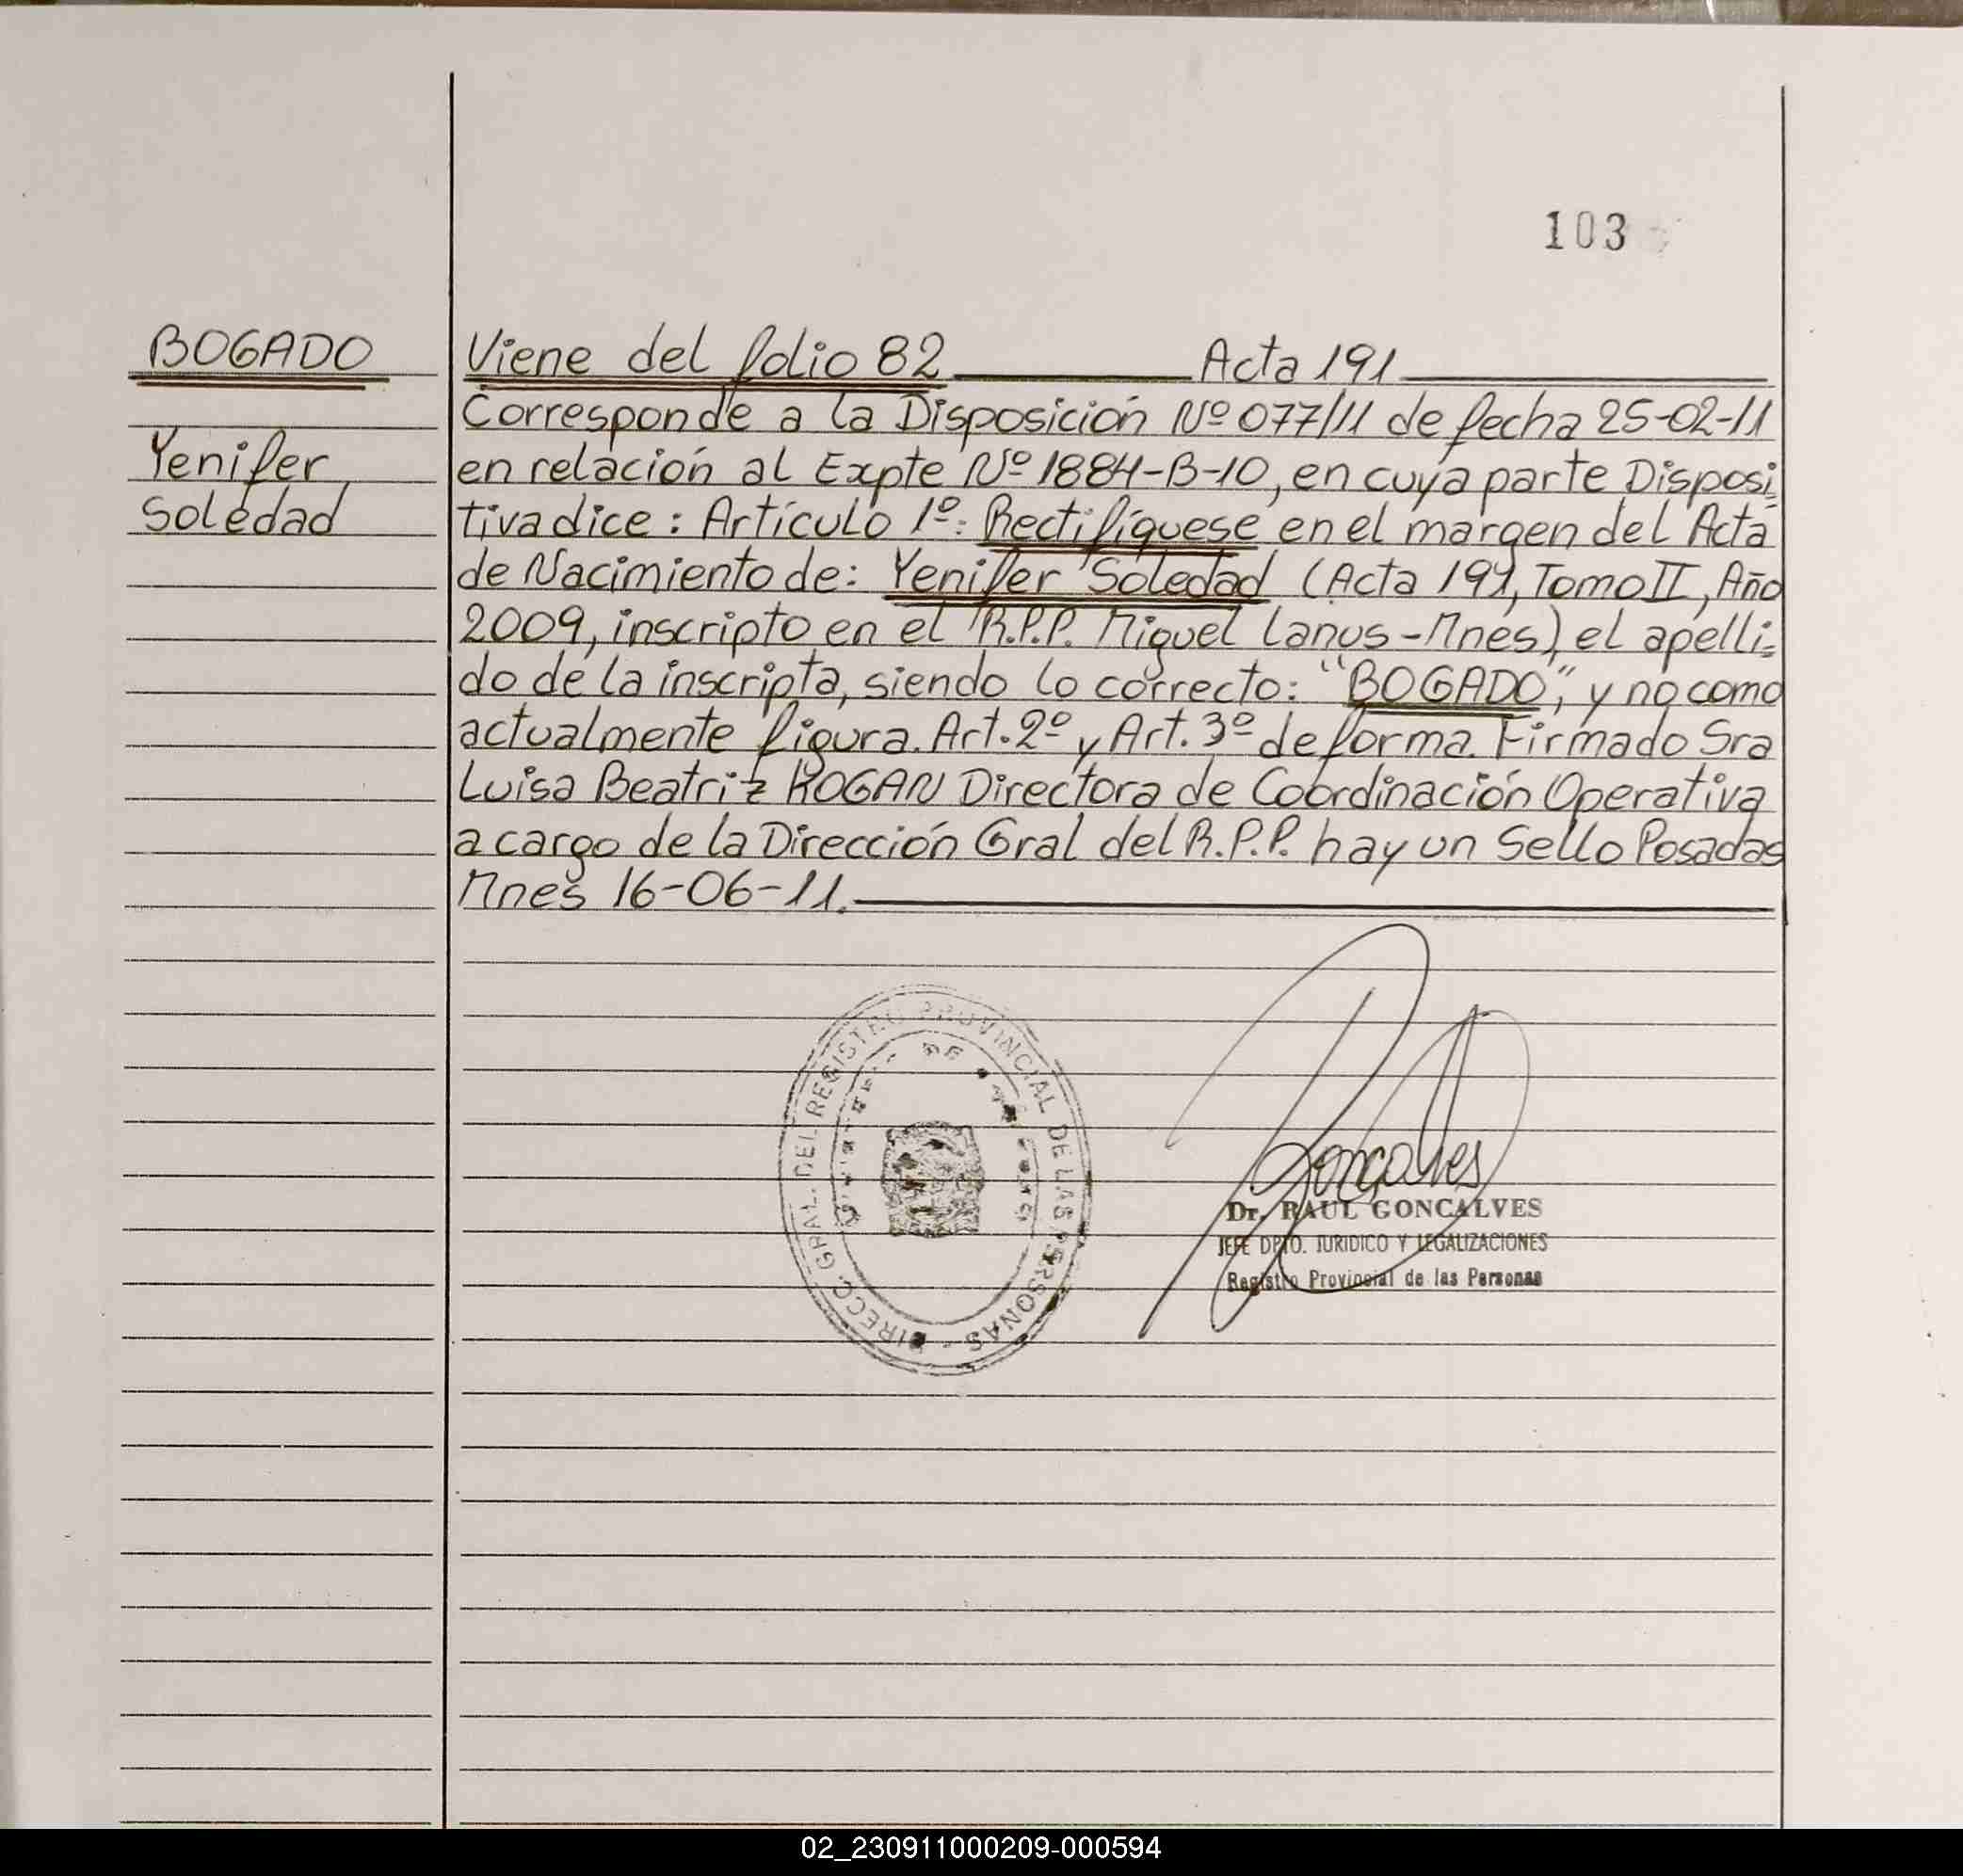 103
BOGADO
Yenifer
Soledad
Viene del folio 82 Acta 191
Corresponde a la Disposición Nº 077/11 de fecha 25-02-11
en relación al Expte Nº 1884-B-10, en cuya parte Disposi=
tiva dice: Artículo 1º: Rectifíquese en el margen del Acta
de Nacimiento de: Yenifer Soledad (Acta 191, Tomo II, Año
2009, inscripto en el R.P.P. Miguel Lanus-Mnes), el apelli=
do de la inscripta, siendo lo correcto: "BOGADO", y no como
actualmente figura. Art. 2º y Art. 3º de forma. Firmado Sra
Luisa Beatriz HOGAN Directora de Coordinación Operativa
a cargo de la Dirección Gral del R.P.P. hay un Sello Posadas
Mnes 16-06-11.
DIRECC. GRAL. DEL REGISTRO PROVINCIAL DE LAS PERSONAS -
Gonçalves
Dr. RAUL GONCALVES
JEFE DPTO. JURIDICO Y LEGALIZACIONES
Registro Provincial de las Personas
02_230911000209-000594